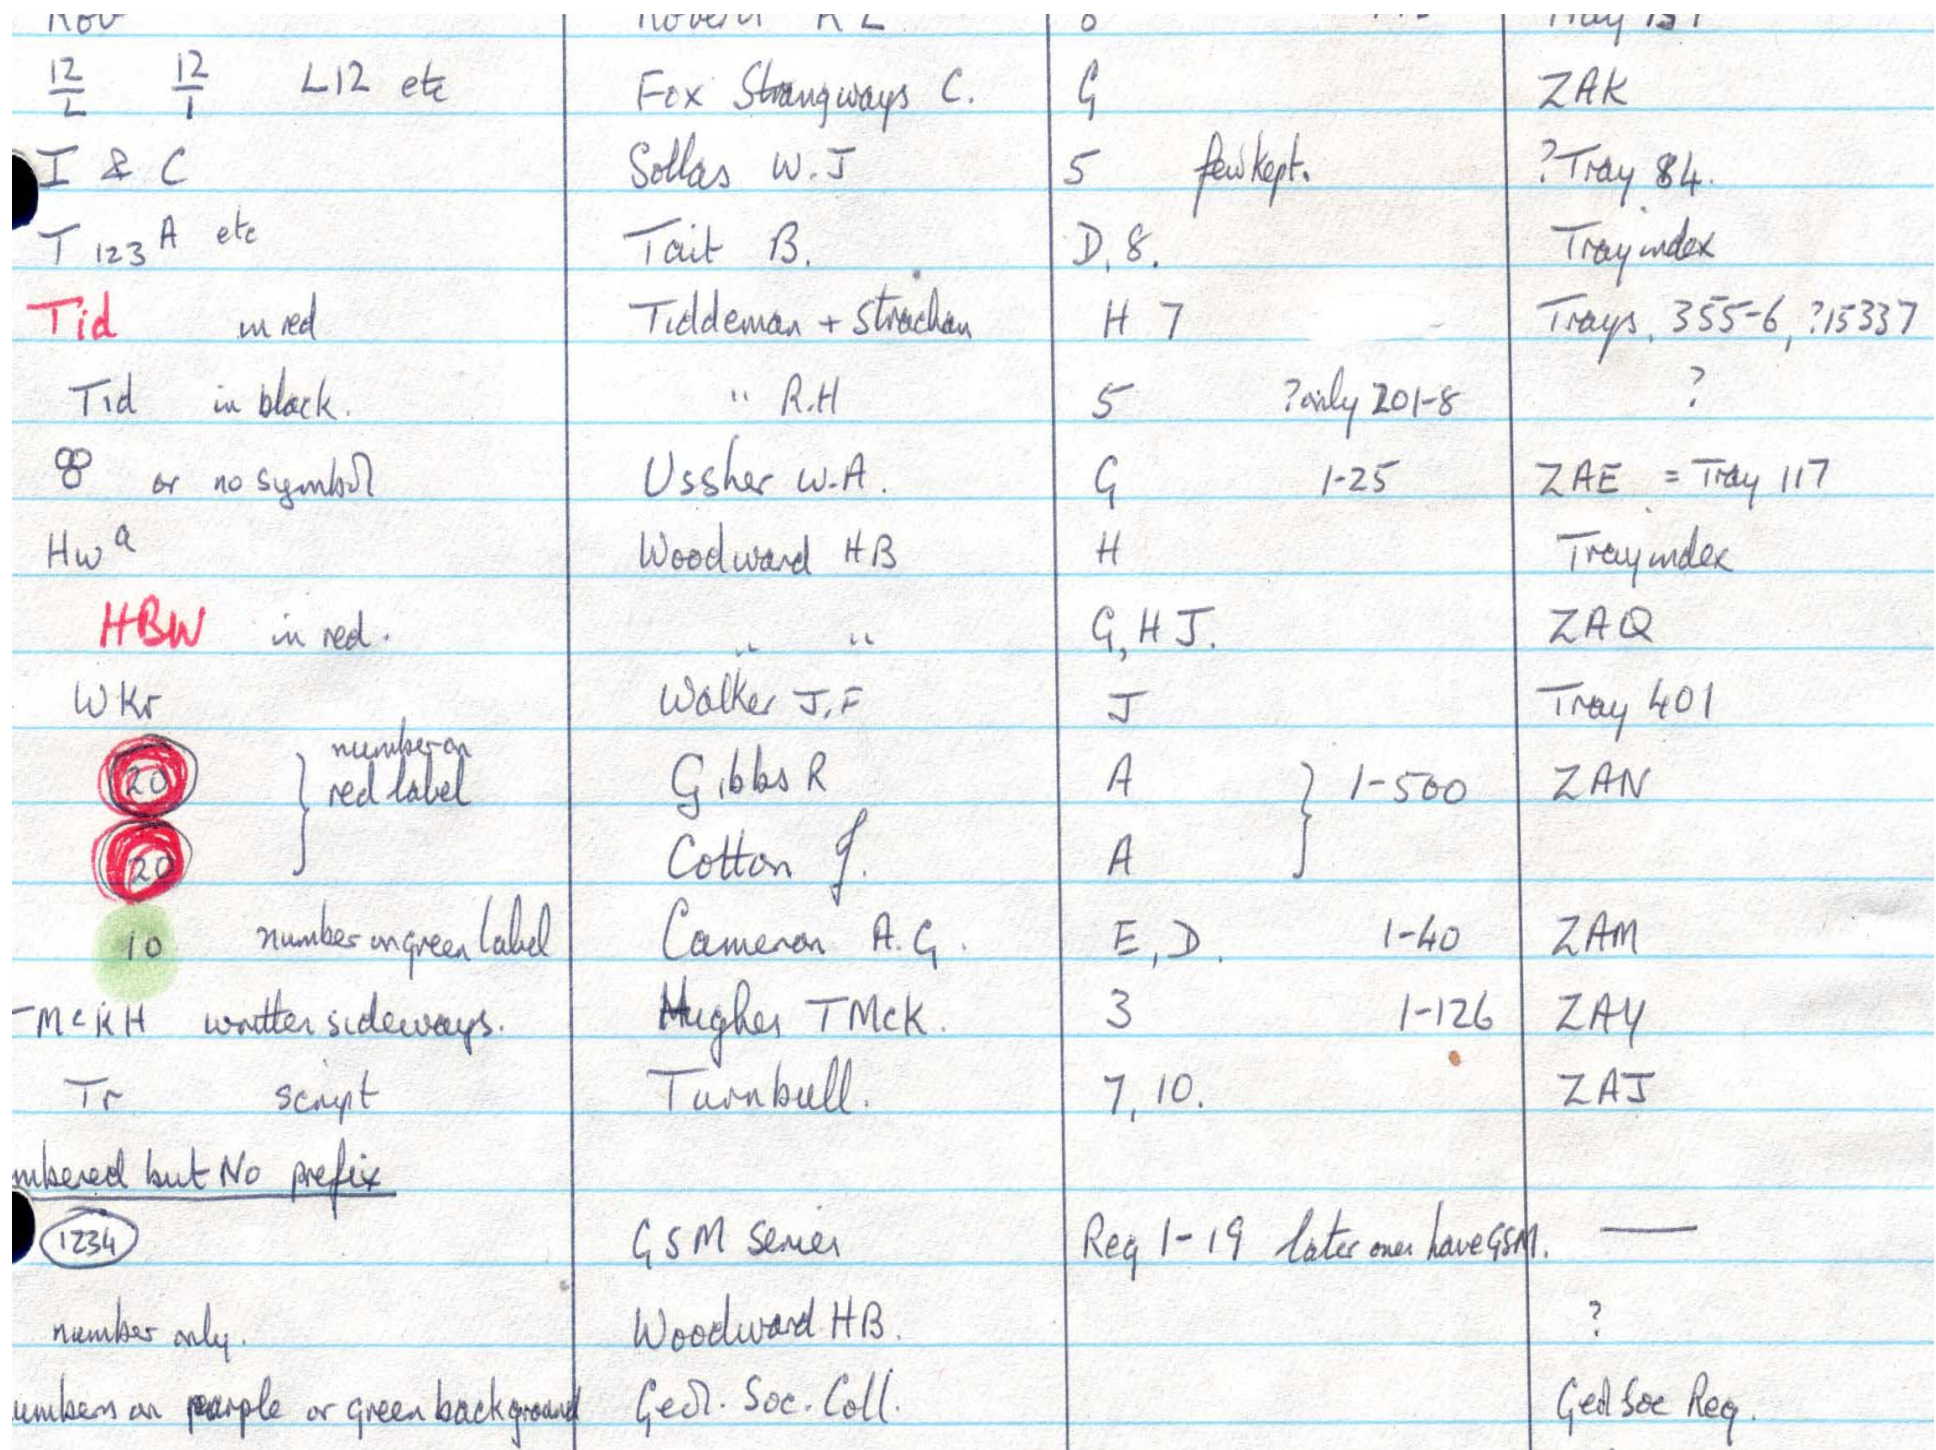 12/L 12/1 L12 etc Fox Strangways C. G ZAK
I & C Sollas W.J 5 few kept. ?Tray 84.
T 123 A etc Tait B. D, 8. Tray index
Tid in red Tiddeman + Strachan H 7 Trays, 355-6, ?15337
Tid in black. " R.H 5 ?only 201-8 ?
or no symbol Ussher W.A. G 1-25 ZAE = Tray 117
Hw a Woodward HB H Tray index
HBW in red. " " G, H J. ZAQ
WKr Walker J.F J Tray 401
20 } number on red label Gibbs R A } 1-500 ZAN
20 Cotton J. A
10 number on green label Cameron A.G. E, D. 1-40 ZAM
TMcKH written sideways. Hughes TMcK. 3 1-126 ZAY
Tr script Turnbull. 7, 10. ZAJ
mbered but No prefix
1234 GSM series Reg 1-19 later ones have GSM. —
number only. Woodward HB. ?
umbers on purple or green background Geol. Soc. Coll. Geol Soc Reg.